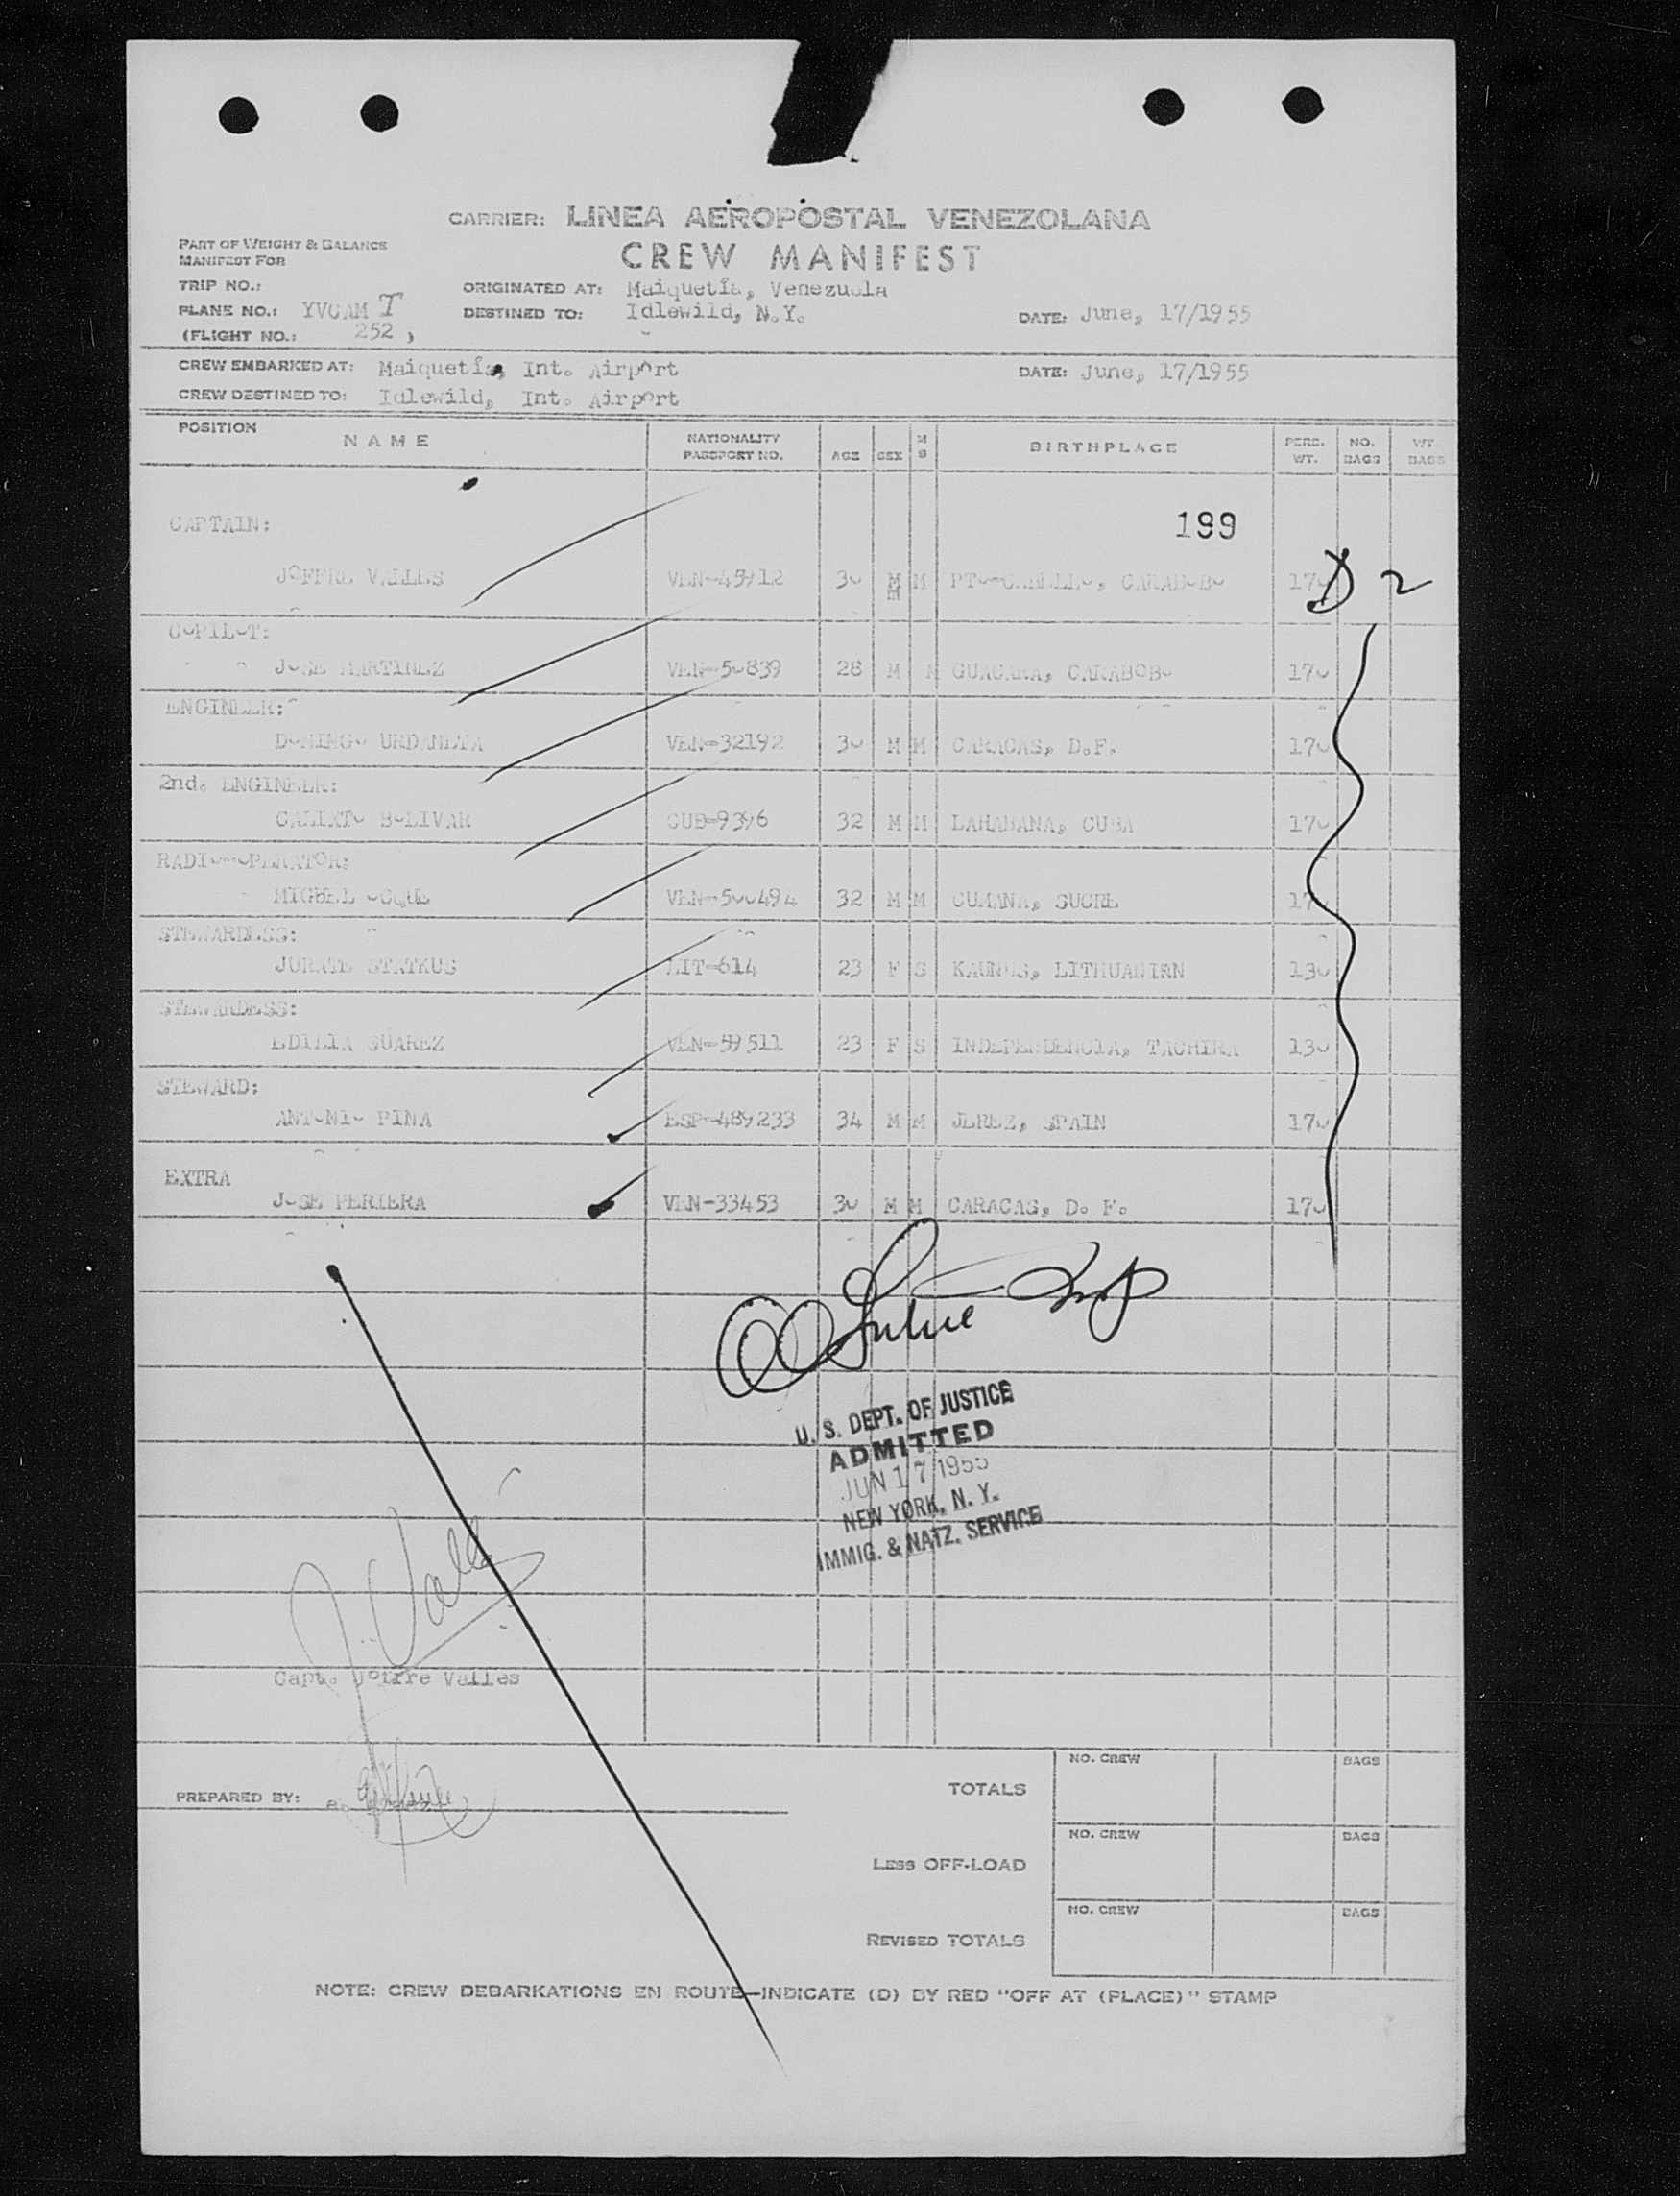 CARRIER: LINEA AEROPOSTAL VENEZOLANA
PART OF WEIGHT & BALANCE
MANIFEST FOR
CREW MANIFEST
TRIP NO.:
ORIGINATED AT: Maiquetía, Venezuela
PLANE NO.: YVCAM T
DESTINED TO: Idlewild, N.Y.
DATE: June, 17/1955
(FLIGHT NO.: 252 )
CREW EMBARKED AT: Maiquetía, Int. Airport
DATE: June, 17/1955
CREW DESTINED TO: Idlewild, Int. Airport
POSITION NAME NATIONALITY PASSPORT NO. AGE SEX M S BIRTHPLACE PERS. WT. NO. BAGS WT. BAGS
CAPTAIN:
199
JOFFRE VALLES VEN-45912 30 M M PTO-CABELLO, CARABOBO 170 D 2
COPILOT:
JOSE MARTINEZ VEN-50839 28 M M GUACARA, CARABOBO 170
ENGINEER:
DOMINGO URDANETA VEN-32192 30 M M CARACAS, D.F. 170
2nd. ENGINEER:
CALIXTO BOLIVAR CUB-9396 32 M M LAHABANA, CUBA 170
RADIO-OPERATOR:
MIGUEL VEN-500494 32 M M CUMANA, SUCRE 170
STEWARDESS:
JURATE STATKUS LIT-614 23 F S KAUNUS, LITHUANIRN 130
STEWARDESS:
EDILIA SUAREZ VEN-59511 23 F S INDEPENDENCIA, TACHIRA 130
STEWARD:
ANTONIO PINA ESP-489233 34 M M JEREZ, SPAIN 170
EXTRA
JOSE PERIERA VEN-33453 30 M M CARACAS, D. F. 170
U. S. DEPT. OF JUSTICE
ADMITTED
JUN 17 1955
NEW YORK, N. Y.
IMMIG. & NATZ. SERVICE
J. Valles
Capt. Joffre Valles
PREPARED BY:
TOTALS NO. CREW BAGS
LESS OFF-LOAD NO. CREW BAGS
REVISED TOTALS NO. CREW BAGS
NOTE: CREW DEBARKATIONS EN ROUTE—INDICATE (D) BY RED "OFF AT (PLACE)" STAMP